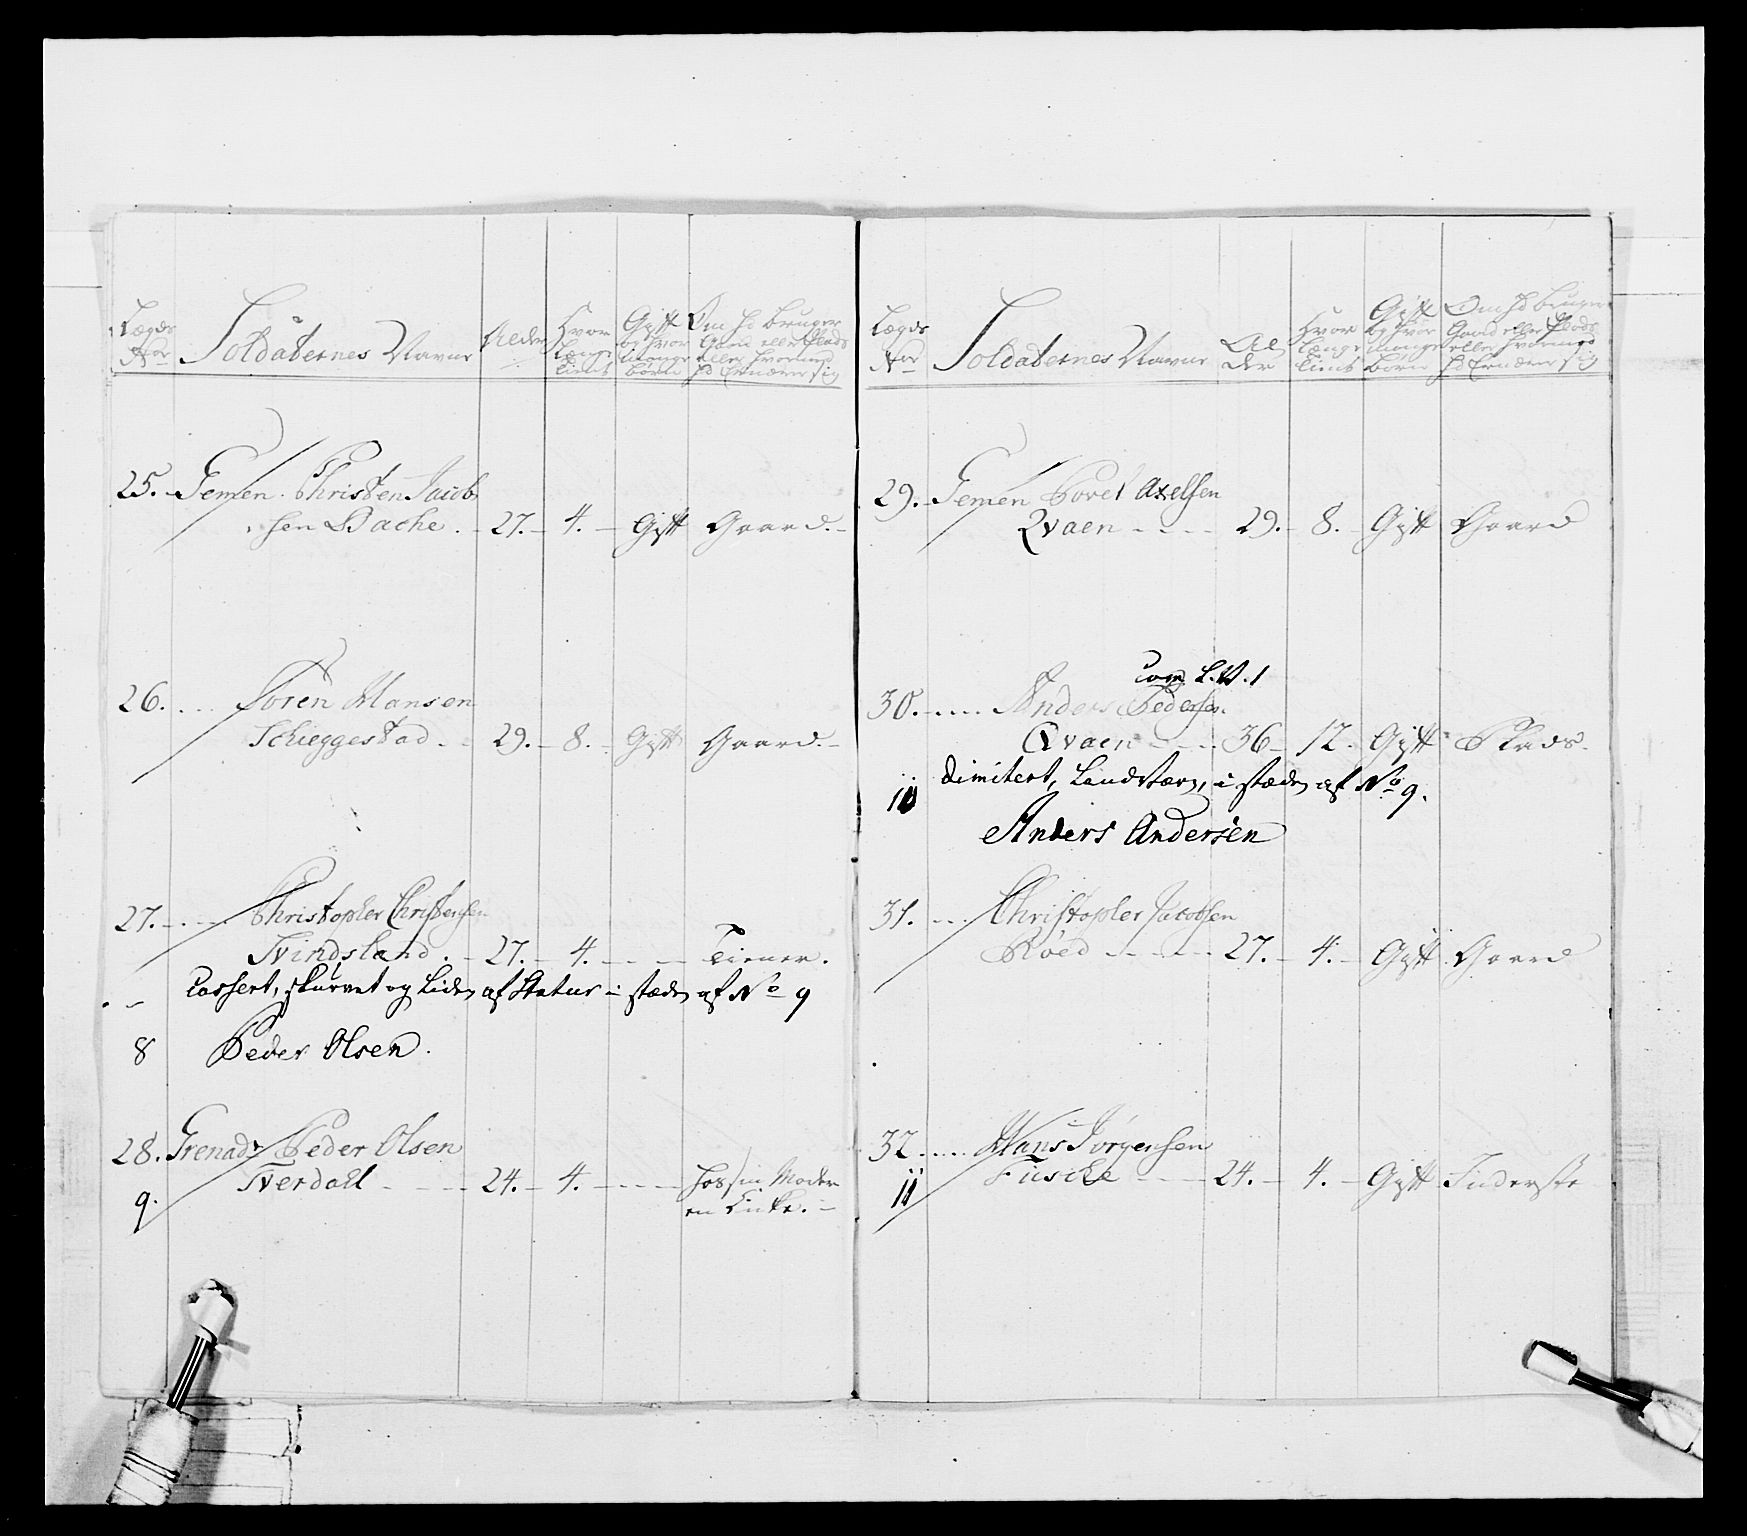 Lægds No
Soldaternes Navne
Alder
Hvor Længe tient
Gift og hvor mange børn
Om hd bruger Gaard eller Plads eller hvormed hd Ernærer sig
25. Gemen. Christen Jacob
sen Bache. - 27. - 4. - Gift Gaard. -
26. .... Soren Hansen
Schieggestad. - 29. - 8. - Gift Gaard. -
27. - .... Christopher Christensen
Tvindsland. - 27. - 4. - - - Tiener.
Cassert, skurvet og Liden af Statur i stæden af No 9
8 Peder Olsen.
28. Grenadr Peder Olsen
Tverdahl - - - 24. - 4. - - - - hos sin Moder
9. en Encke. -
Lægds No
Soldaternes Navne
Alder
Hvor længe tient
Gift og hvor mange børn
Om hd bruger Gaard eller Plads eller hvormed hd Ernærer sig
29. - Gemen Povel Axelsen
Qvaen - - - - 29. - 8. - Gift Gaard
Com L.V. 1
30. - .... Anders Pedersen.
Qvaen - - - 36 - 12. Gift Plads.
dimitert, Landværn, i stæden af No 9.
10 Anders Andersen
31. ... Christopher Jacobsen
Röed - - - - 27. - 4. - Gift Gaard
32. .... Hans Jörgensen
Fuscke - - - 24. - 4. - Gift Inderste
11